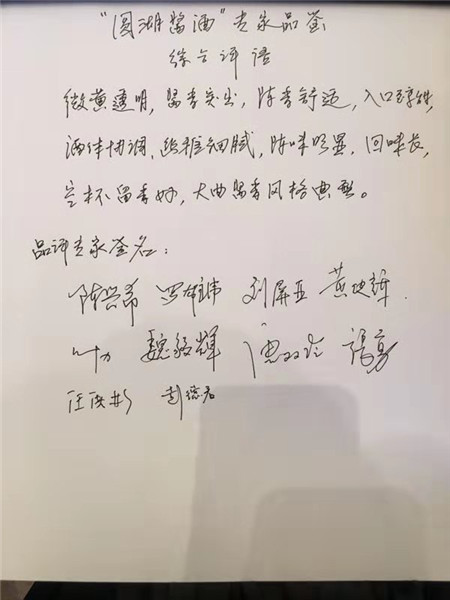 “圆湖酱酒”专家品鉴
综合评语
微黄透明，酱香突出，陈香舒适，入口醇甜，
酒体协调、幽雅细腻，陈味明显，回味长，
空杯留香好，大曲酱香风格典型。
品评专家签名：
陈兴希 罗雄伟 刘屏亚 黄
魏 辉
汪 彭